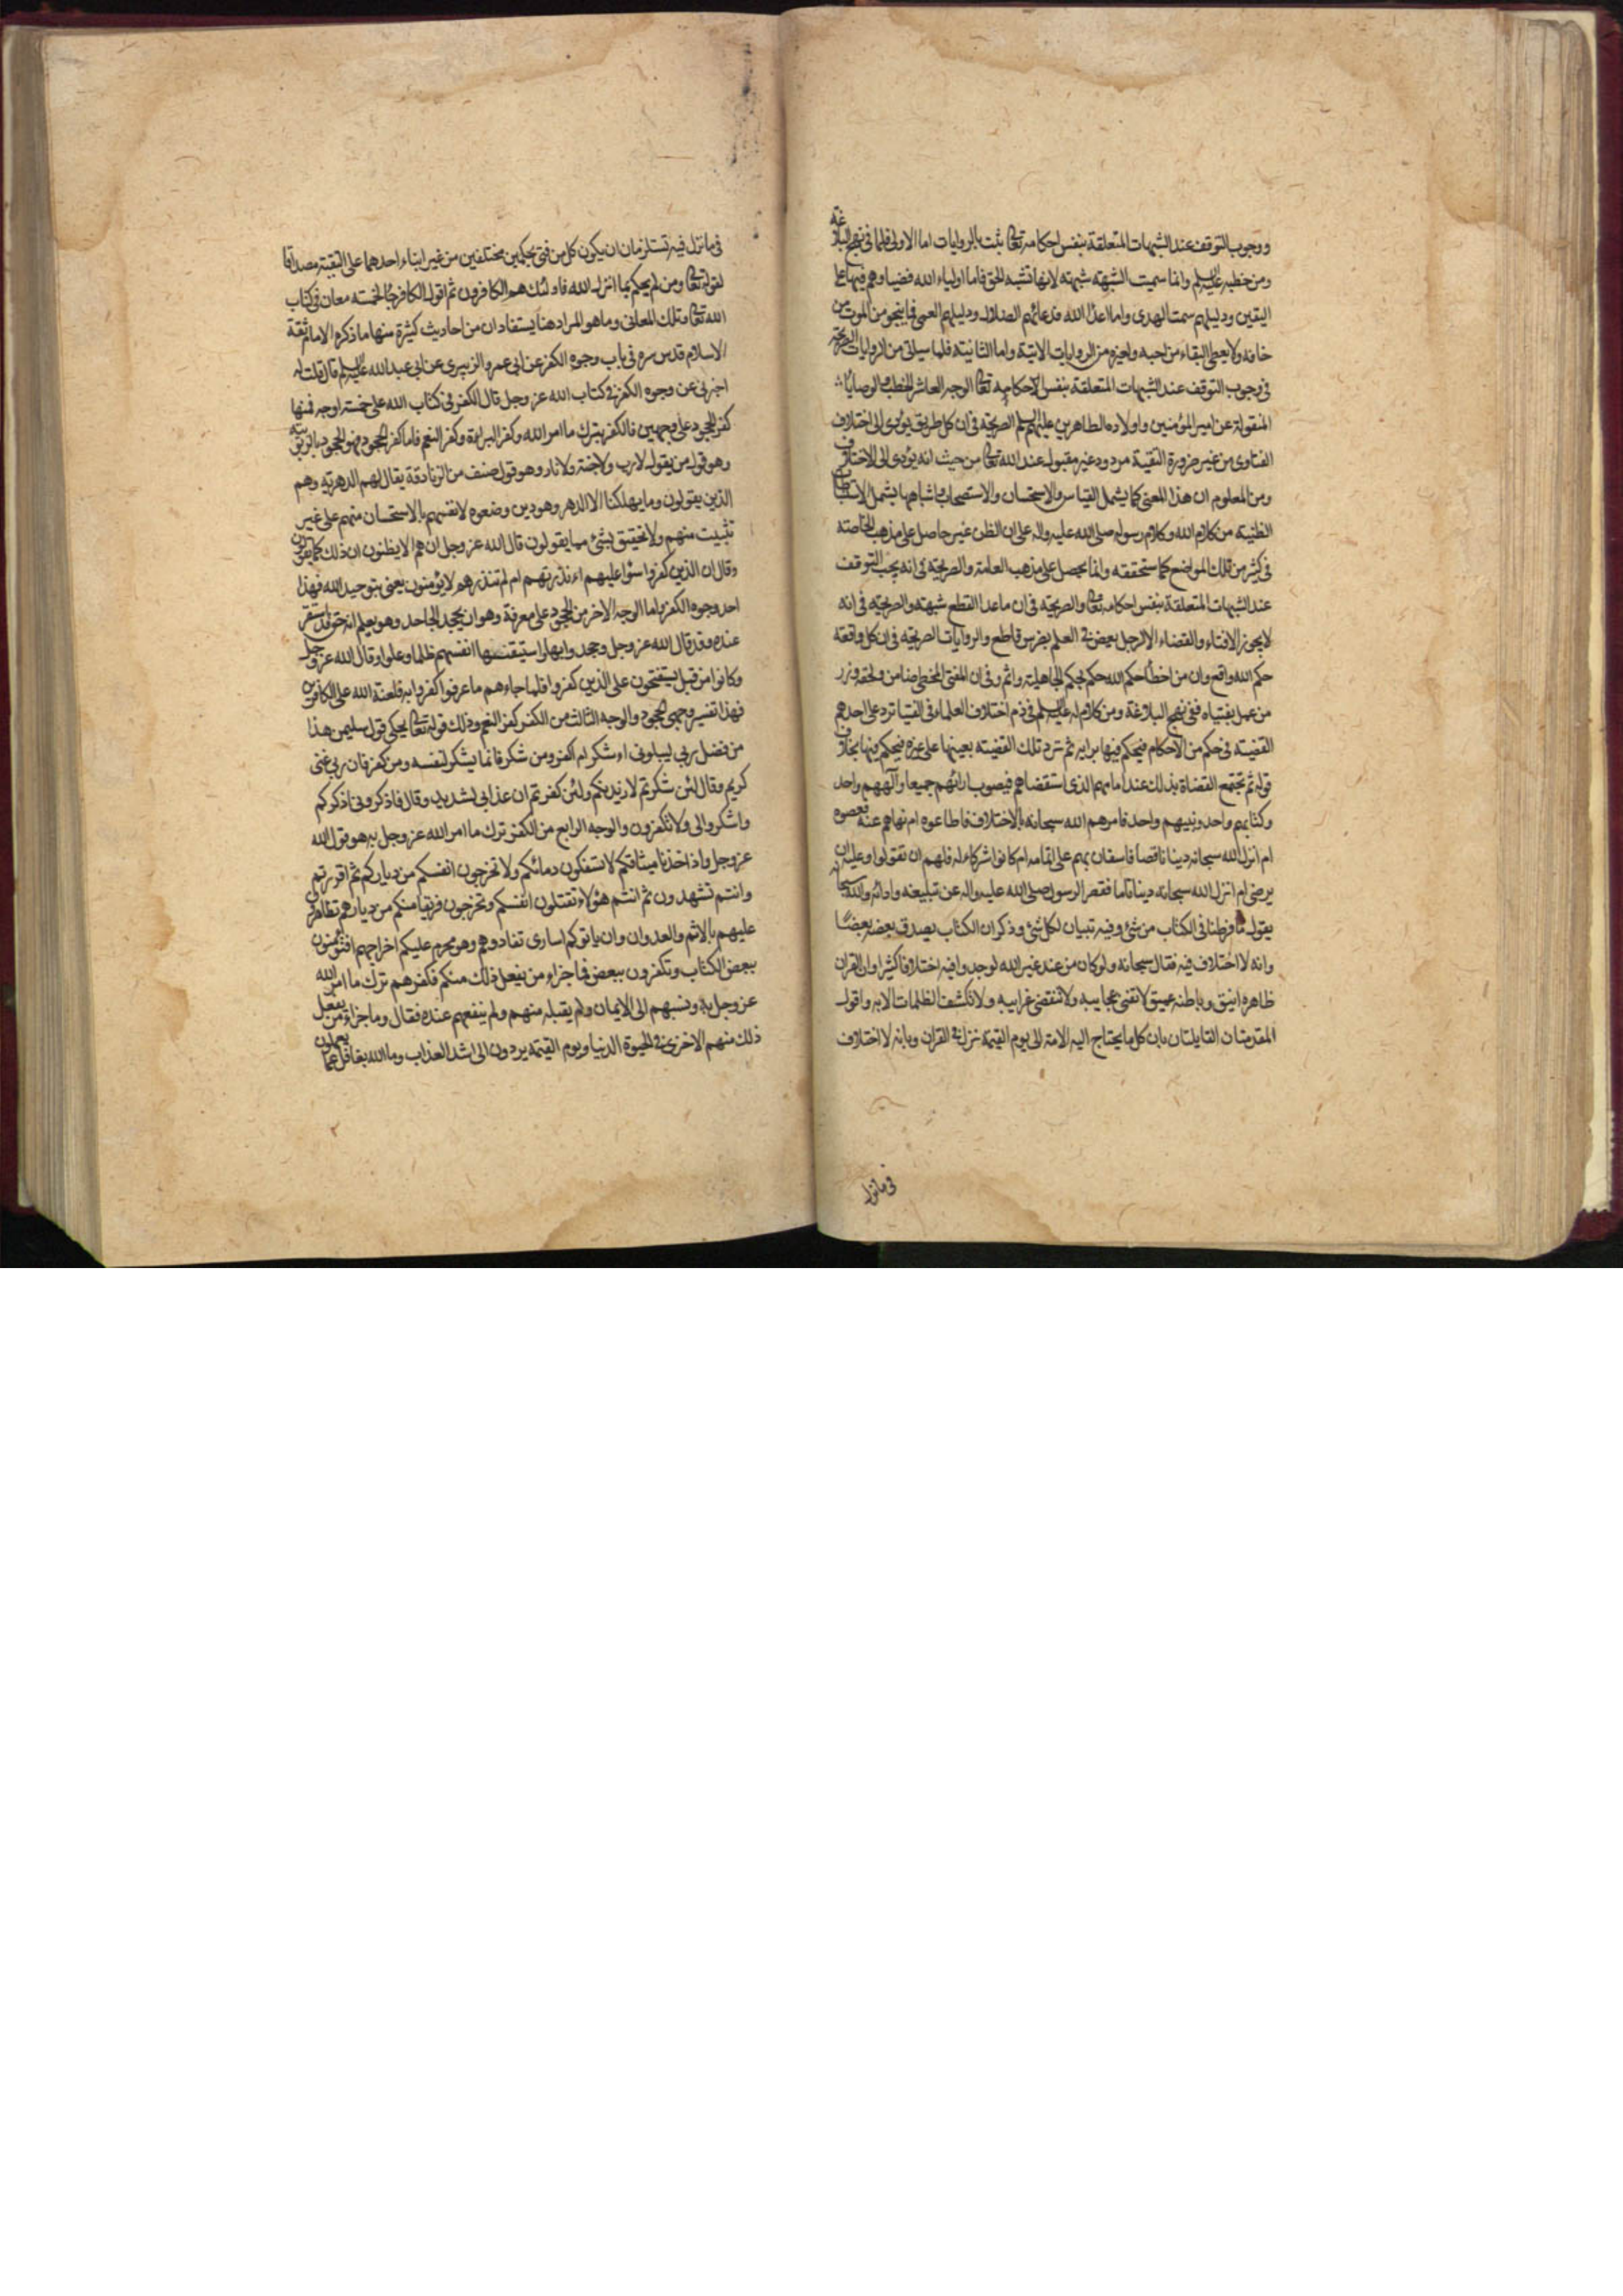 ووجوب التوقف عند الشبهات المتعلقة بنفس احكامه تعالى ثبت بالروايات اما الاولى فلما فى نهج البلاغة
ومن خطبه عليه السلم وانما سميت الشبهة شبهة لانها تشبه الحق فاما اولياء الله فضياوهم فيها
اليقين ودليلهم سمت الهدى واما اعداء الله فدعائهم الضلال ودليلهم العمى فما ينجو من الموت من
خافه ولا يعطى البقاء من احبه وغيره من الروايات الاتية واما الثانية فلما سياتى من الروايات الصريحة
فى وجوب التوقف عند الشبهات المتعلقة بنفس الاحكامه تعالى الوجه العاشر الخطب والوصايا
المنقولة عن امير المؤمنين واولاده الطاهرين عليهم السلم الصريحة فى ان كل طريق يؤدى الى اختلاف
الفتاوى من غير ضرورة التقية مردود غير مقبول عند الله تعالى من حيث انه يؤدى الى الاختلاف
ومن المعلوم ان هذا المعنى كما يشمل القياس والاستحسان والاستصحاب واشباهها يشمل الاستنباط
الظنية من كلام الله وكلام رسوله صلى الله عليه واله على ان الظن غير حاصل على مذهب الخاصة
فى كثير من تلك المواضع كما ستحققه وانما يحصل على مذهب العامة والصريحة فى انه يجب التوقف
عند الشبهات المتعلقة بنفس احكامه تعالى والصريحة فى ان ماعدا القطع شبهة والصريحة فى انه
لا يجوز الافتاء والقضاء الا لرجل يعض فى العلم بضرس قاطع والروايات الصريحة فى ان كل واقعة
حكم الله واقع وان من اخطأ حكم الله حكم بحكم الجاهلية واثم وفى ان المفتى المخطى ضامن ولحقه وزر
من عمل بفتياه ففى نهج البلاغة ومن كلام له عليه السلم فى ذم اختلاف العلماء فى الفتيا ترد على احدهم
القضية فى حكم من الاحكام فيحكم فيها برايه ثم ترد تلك القضية بعينها على غيره فيحكم فيها بخلاف
قوله ثم تجتمع القضاة بذلك عند امامهم الذى استقضاهم فيصوب ارائهم جميعا والههم واحد
وكتابهم واحد ونبيهم واحد فامرهم الله سبحانه بالاختلاف فاطاعوه ام نهاهم عنه فعصوه
ام انزل الله سبحانه دينا ناقصا فاستعان بهم على اتمامه ام كانوا شركاء له فلهم ان تقولوا وعليه ان
يرضى ام انزل الله سبحانه دينا تاما فقصر الرسول صلى الله عليه واله عن تبليغه وادائه والله سبحانه
يقول ما فرطنا فى الكتاب من شئ وفيه تبيان لكل شئ وذكر ان الكتاب يصدق بعضه بعضا
وانه لا اختلاف فيه فقال سبحانه ولو كان من عند غير الله لوجدوا فيه اختلافا كثيرا وان القران
ظاهره انيق وباطنه عميق لا تفنى عجايبه ولا تنقضى غرايبه ولا تكشف الظلمات الا به واقول
المقدمتان القايلتان بان كل ما يحتاج اليه الامة الى يوم القيمة نزل فى القران وبانه لا اختلاف
فى مانزل
فى مانزل فيه تستلزمان ان يكون كل من فتى بحكمين مختلفين من غير ابتناء احدهما على التقية مصداقا
لقوله تعالى ومن لم يحكم بما انزل الله فاولئك هم الكافرون ثم اقول الكافر جاء لخمسة معان فى كتاب
الله تعالى وتلك المعانى وماهو المراد هنا يستفادان من احاديث كثيرة منها ما ذكره الامام ثقة
الاسلام قدس سره فى باب وجوه الكفر عن ابى عمرو الزبيرى عن ابى عبد الله عليه السلم قال قلت له
اخبرنى عن وجوه الكفر فى كتاب الله عز وجل قال الكفر فى كتاب الله على خمسة اوجه فمنها
كفر الجحود على وجهين فالكفر بترك ما امر الله وكفر البراءة وكفر النعم فاما كفر الجحود فهو الجحود بالربوبية
وهو قول من يقول لا رب ولا جنة ولا نار وهو قول صنف من الزنادقة يقال لهم الدهرية وهم
الذين يقولون وما يهلكنا الا الدهر وهو دين وضعوه لانفسهم بالاستحسان منهم على غير
تثبيت منهم ولا تحقيق بشئ مما يقولون قال الله عز وجل ان هم الا يظنون ان ذلك كما يقولون
وقال ان الذين كفروا سواء عليهم ءانذرتهم ام لم تنذرهم لا يؤمنون يعنى بتوحيد الله فهذا
احد وجوه الكفر واما الوجه الاخر من الجحود على معرفة وهو ان يجحد الجاحد وهو يعلم انه حق قد استقر
عنده وقد قال الله عز وجل وجحدوا بها واستيقنتها انفسهم ظلما وعلوا وقال الله عز وجل
وكانوا من قبل يستفتحون على الذين كفروا فلما جاءهم ما عرفوا كفروا به فلعنة الله على الكافرين
فهذا تفسير وجهى الجحود والوجه الثالث من الكفر كفر النعم وذلك قوله تعالى يحكى قول سليمن هذا
من فضل ربى ليبلونى ءاشكر ام اكفر ومن شكر فانما يشكر لنفسه ومن كفر فان ربى غنى
كريم وقال لئن شكرتم لازيدنكم ولئن كفرتم ان عذابى لشديد وقال فاذكرونى اذكركم
واشكروا لى ولا تكفرون والوجه الرابع من الكفر ترك ما امر الله عز وجل به هو قول الله
عز وجل واذ اخذنا ميثاقكم لا تسفكون دمائكم ولا تخرجون انفسكم من دياركم ثم اقررتم
وانتم تشهدون ثم انتم هؤلاء تقتلون انفسكم وتخرجون فريقا منكم من ديارهم تظاهرون
عليهم بالاثم والعدوان وان ياتوكم اسارى تفادوهم وهو محرم عليكم اخراجهم افتؤمنون
ببعض الكتاب وتكفرون ببعض فما جزاء من يفعل ذلك منكم فكفرهم ترك ما امر الله
عز وجل به ونسبهم الى الايمان ولم يقبله منهم ولم ينفعهم عنده فقال وما جزاء من يفعل
ذلك منهم الا خزى فى الحيوة الدنيا ويوم القيمة يردون الى اشد العذاب وما الله بغافل عما يعملون